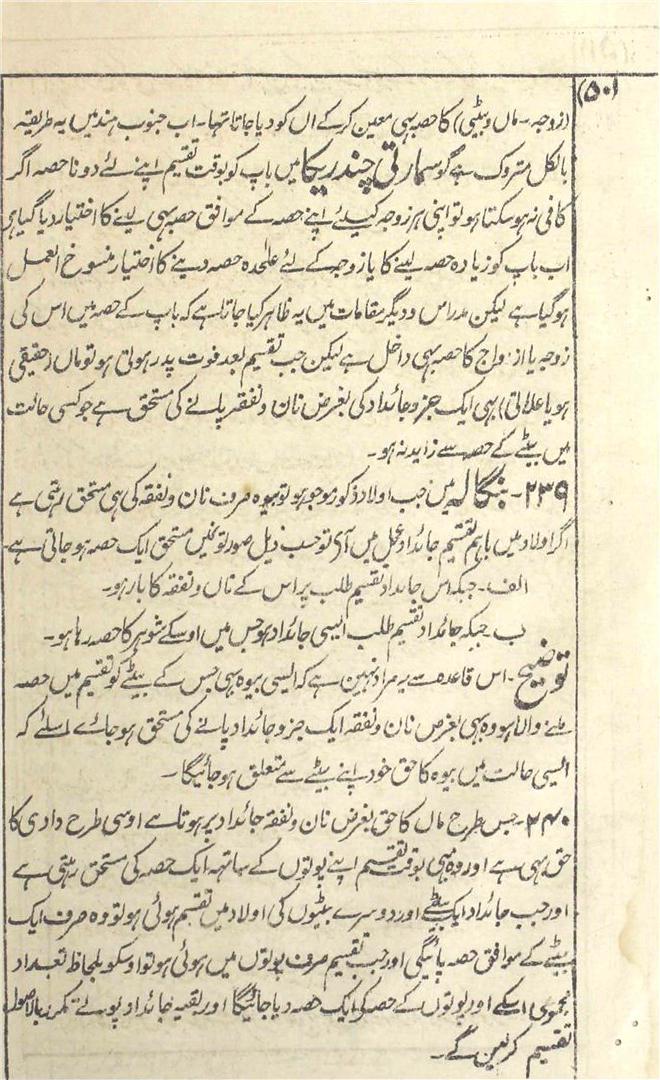 (۵۰)
(زوجہ - ماں و بیٹی) کا حصہ بہی معین کر کے اں کو دیا جاتا تہا - اب جنوب ہند میں یہ طریقہ
بالکل متروک ہے گو سمارتی چندریکا میں باپ کو بوقت تقسیم اپنے لئے دونا حصہ اگر
کافی نہ ہو سکتا ہو تو اپنی ہر زوجہ کیلئے اپنے حصہ کے موافق حصہ بہی لینے کا اختیار دیا گیا ہی
اب باپ کو زیادہ حصہ لینے کا یا زوجہ کے لئے علحدہ حصہ دینے کا اختیار منسوخ العمل
ہو گیا ہے لیکن مدراس و دیگر مقامات میں یہ ظاہر کیا جاتا ہے کہ باپ کے حصہ میں اس کی
زوجہ یا ازواج کا حصہ بہی داخل ہے لیکن جب تقسیم بعد فوت پدر ہوتی ہو تو ماں (حقیقی
ہو یا علاتی) بہی ایک جزو جائداد کی بغرض نان و نفقہ پانے کی مستحق ہے جو کسی حالت
میں بیٹے کے حصہ سے زاید نہ ہو -
۲۳۹ - بنگالہ میں جب اولاد ذکور موجود ہو تو بیوہ صرف نان و نفقہ کی ہی مستحق رہتی ہے
اگر اولاد میں باہم تقسیم جائداد عمل میں آئی تو حسب ذیل صورتوں میں مستحق ایک حصہ ہو جاتی ہے -
الف - جبکہ اس جائداد تقسیم طلب پر اس کے نان و نفقہ کا بار ہو -
ب - جبکہ جائداد تقسیم طلب ایسی جائداد ہو جس میں اوسکے شوہر کا حصہ رہا ہو -
توضیح - اس قاعدہ سے یہ مراد نہین ہے کہ ایسی بیوہ بہی جس کے بیٹے کو تقسیم میں حصہ
ملنے والا ہو وہ بہی بغرض نان و نفقہ ایک جزو جائداد پانے کی مستحق ہو جاے اسلئے کہ
ایسی حالت میں بیوہ کا حق خود اپنے بیٹے سے متعلق ہو جائیگا -
۲۴۰ - جس طرح ماں کا حق بغرض نان و نفقہ جائداد پر ہوتا ہے اوسی طرح دادی کا
حق بہی ہے اور وہ بہی بوقت تقسیم اپنے پوتوں کے ساتہہ ایک حصہ کی مستحق رہتی ہے
اور جب جائداد ایک بیٹے اور دوسرے بیٹیوں کی اولاد میں تقسیم ہوئی ہو تو وہ صرف ایک
بیٹے کے موافق حصہ پائیگی اور جب تقسیم صرف پوتوں میں ہوئی ہو تو اوسکو بلحاظ تعداد
مجموعی اسکے اور پوتوں کے حصہ کی ایک حصہ دیا جائیگا اور بقیہ جائداد پوتے بالاصول
تقسیم کر لیں گے -